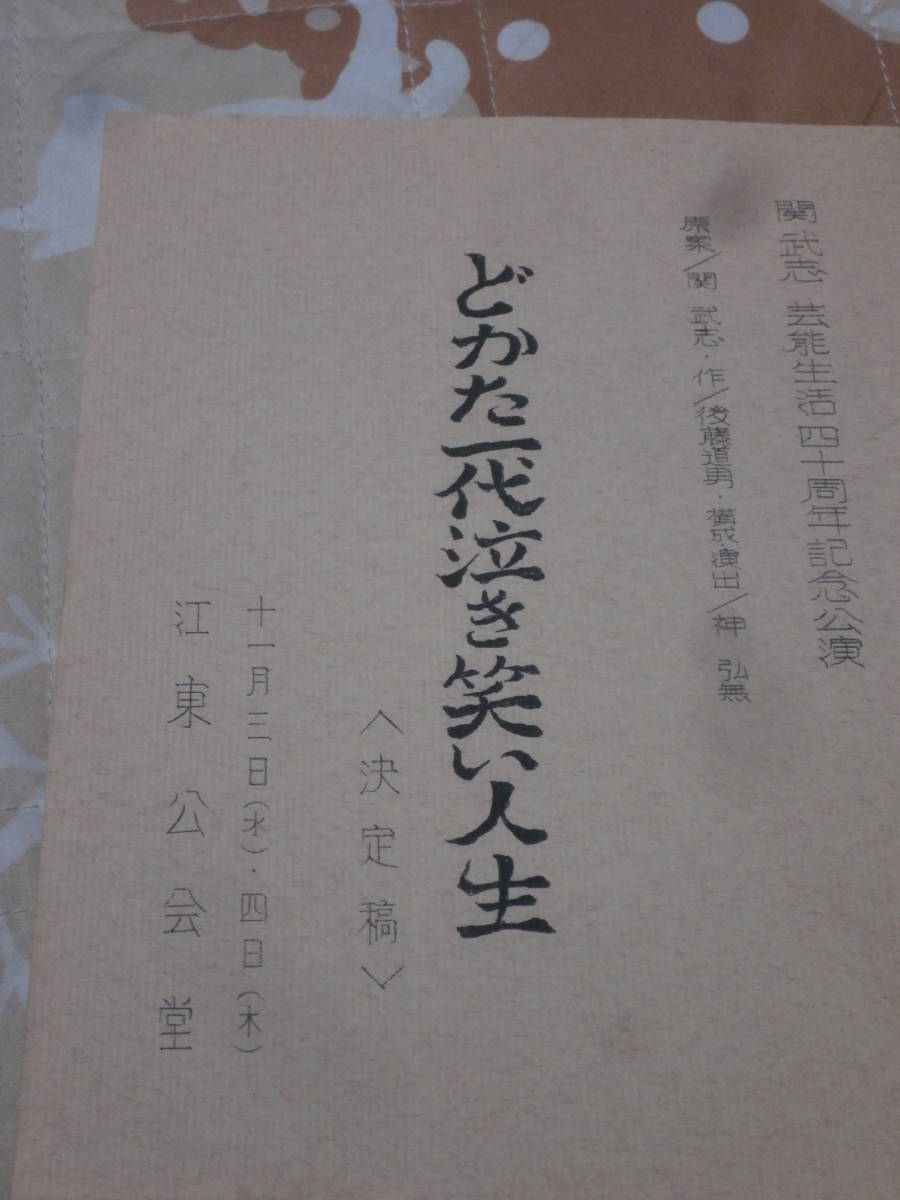 関武志 芸能生活四十周年記念公演
原案/関 武志・作/後藤道男・構成・演出/神 弘無
どかた一代泣き笑い人生
〈決定稿〉
十一月三日(水)・四日(木)
江東公会堂